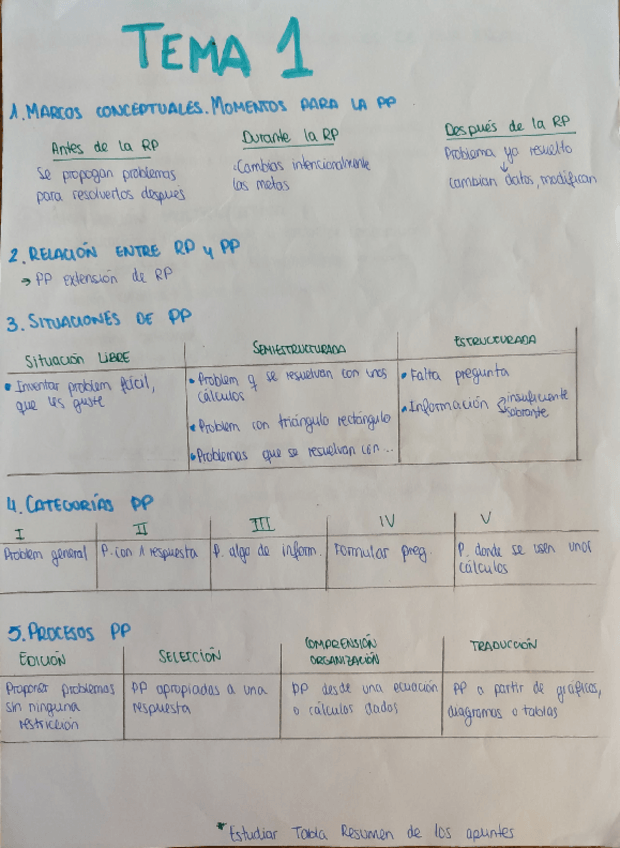 TEMA 1
1. MARCOS CONCEPTUALES. MOMENTOS PARA LA PP
Antes de la RP
Se propogan problemas
para resolverlos despues
Durante la RP
Cambias intencionalmente
las metas
Después de la RP
Problema ya resuelto
↓
cambian datos, modifican
2. RELACIÓN ENTRE RP y PP
→ PP extensión de RP
3. SITUACIONES DE PP
SITUACIÓN LIBRE
• Inventar problem fácil,
que les guste
SEMIESTRUCTURADA
• Problem q se resuelvan con unos
cálculos
• Problem con triángulo rectángulo
• Problemas que se resuelvan con...
ESTRUCTURADA
• Falta pregunta
• Información insuficiente
sobrante
4. CATEGORÍAS PP
I
Problem general
II
P. con 1 respuesta
III
P. algo de inform.
IV
Formular preg.
V
P. donde se usen unos
cálculos
5. PROCESOS PP
EDICIÓN
Proponer problemas
sin ninguna
restricción
SELECCIÓN
PP apropiadas a una
respuesta
COMPRENSIÓN
ORGANIZACIÓN
PP desde una ecuación
o cálculos dados
TRADUCCIÓN
PP a partir de gráficos,
diagramas o tablas
* Estudiar Tabla Resumen de los apuntes